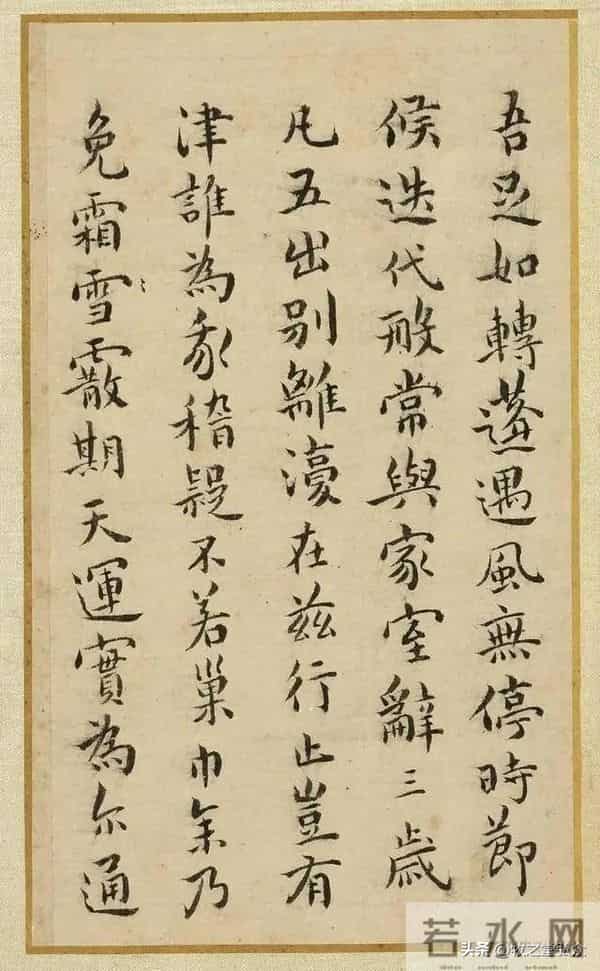 吾足如轉蓬遇風無停時節
候迭代常與家室辭三歲
凡五出別離在茲行止豈有
津誰為我稽疑不若巢乃
免霜雪霰期天運實為尔通
若水网
头条